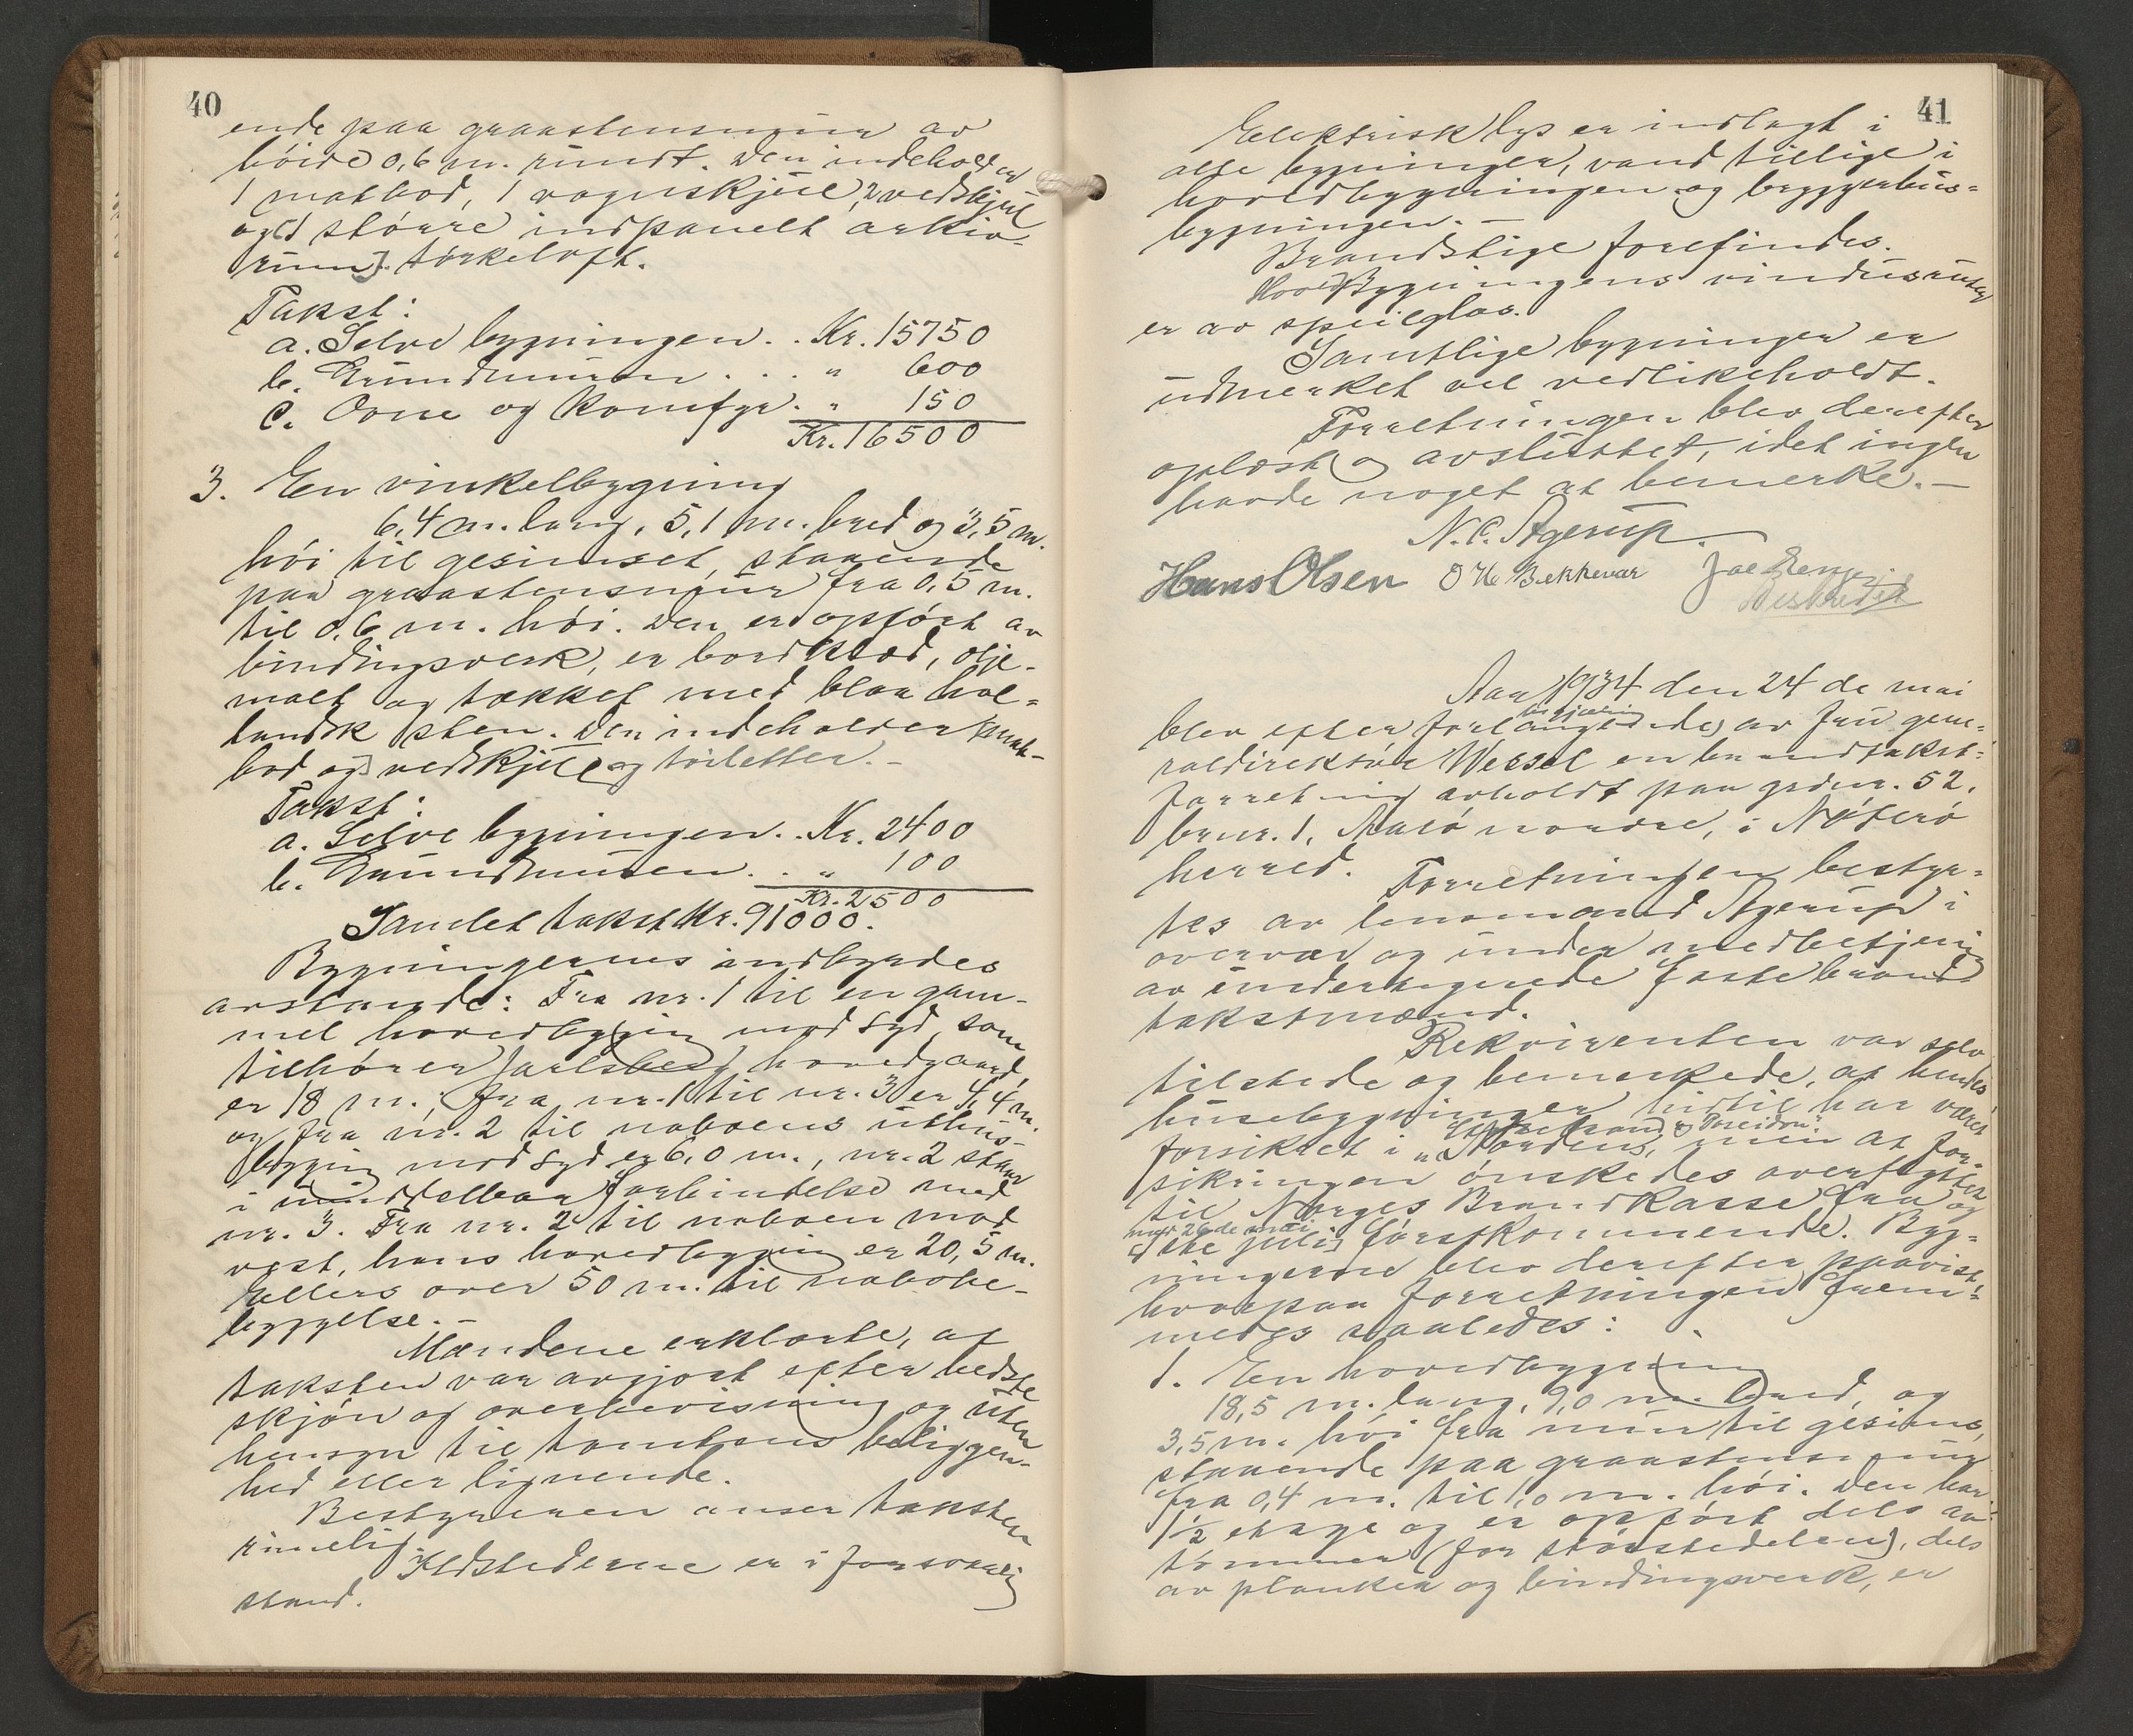 40
ende paa graastensmur av
höide 0,6 m. rundt. Den indeholder
1 matbod, 1 vognskjul, 2 vedskjul
og (1 större indpanelt arkiv-
rum). törkeloft.
Takst:
a. Selve bygningen . . Kr. 15750
b. Grundmuren . . . " 600
c. Ovne og komfyr . " 150
Kr. 16500
3. En vinkelbygning
6,4 m. lang, 5,1 m. bred og 3,5 m.
höi til gesimset, staaende
paa graastensmur fra 0,5 m.
til 0,6 m. höi. Den er opfört av
bindingsverk, er bordklæd, olje-
malt og tækket med blaa hol-
landsk sten. Den indeholder mat-
bod og vedskjul og toiletter. –
Takst:
a. Selve bygningen . . Kr. 2400
b. Grundmuren . . " 100
Kr. 2500
Samlet takst Kr. 91000.
Bygningernes indbyrdes
avstande: Fra nr. 1 til en gam-
mel hovedbygning mod syd, som
tilhörer Jarlsberg hovedgaard,
er 18 m.; fra nr. 1 til nr. 3 er 4,4 m.
og fra nr. 2 til naboens uthus-
bygning mod syd er 6,0 m., nr. 2 staar
i umiddelbar forbindelse med
nr. 3. Fra nr. 2 til naboen mod
vest, hans hovedbygning er 20,5 m.
Ellers over 50 m. til nabobe-
byggelse. –
Mændene erklærte, at
taksten var avgjort efter bedste
skjön og overbevisning og uten
hensyn til tomtens beliggen-
hed eller lignende.
Bestyreren anser taksten
rimelig.
Ildstederne er i forsvarlig
stand.
41
Elektrisk lys er indlagt i
alle bygninger, vand tillige i
hovedbygningen og bryggerhus-
bygningen. –
Brandstige forefindes.
Hovedbygningens vindusruter
er av speilglas.
Samtlige bygninger er
udmerket vel vedlikeholdt.
Forretningen blev derefter
oplæst og avsluttet, idet ingen
havde noget at bemerke. –
N. C. Agerup.
Hans Olsen O H Bekkevar
Aar 1934 den 24 de mai
begjæring
blev efter forlangende av fru gene-
raldirektör Wessel en brandtakst-
forretning avholdt paa grdnr. 52,
brnr. 1, Aarö nordre, i Nöterö
herred. Forretningen besty-
tes av lensmand Agerup i
overvær og under medbetjening
av undertegnede faste brand-
takstmænd.
Rekvirenten var selv
tilstede og bemerkede, at hendes
husebygninger hittil har været
og Poseidon"
forsikret i "Norden", men at for-
sikringen önskedes overflyttet
til Norges Brandkasse fra og
med 26 de mai
1ste juli förstkommende. Byg-
ningerne blev derefter paavist,
hvorpaa forretningen frem-
medes saaledes:
1. En hovedbygning
18,5 m. lang, 9,0 m. bred, og
3,5 m. höi fra mur til gesims,
staaende paa graastensmur
fra 0,4 m. til 1,0 m. höi. Den har
1½ etage og er opfört dels av
tömmer (for störstedelen), dels
av planker og bindingsverk, er